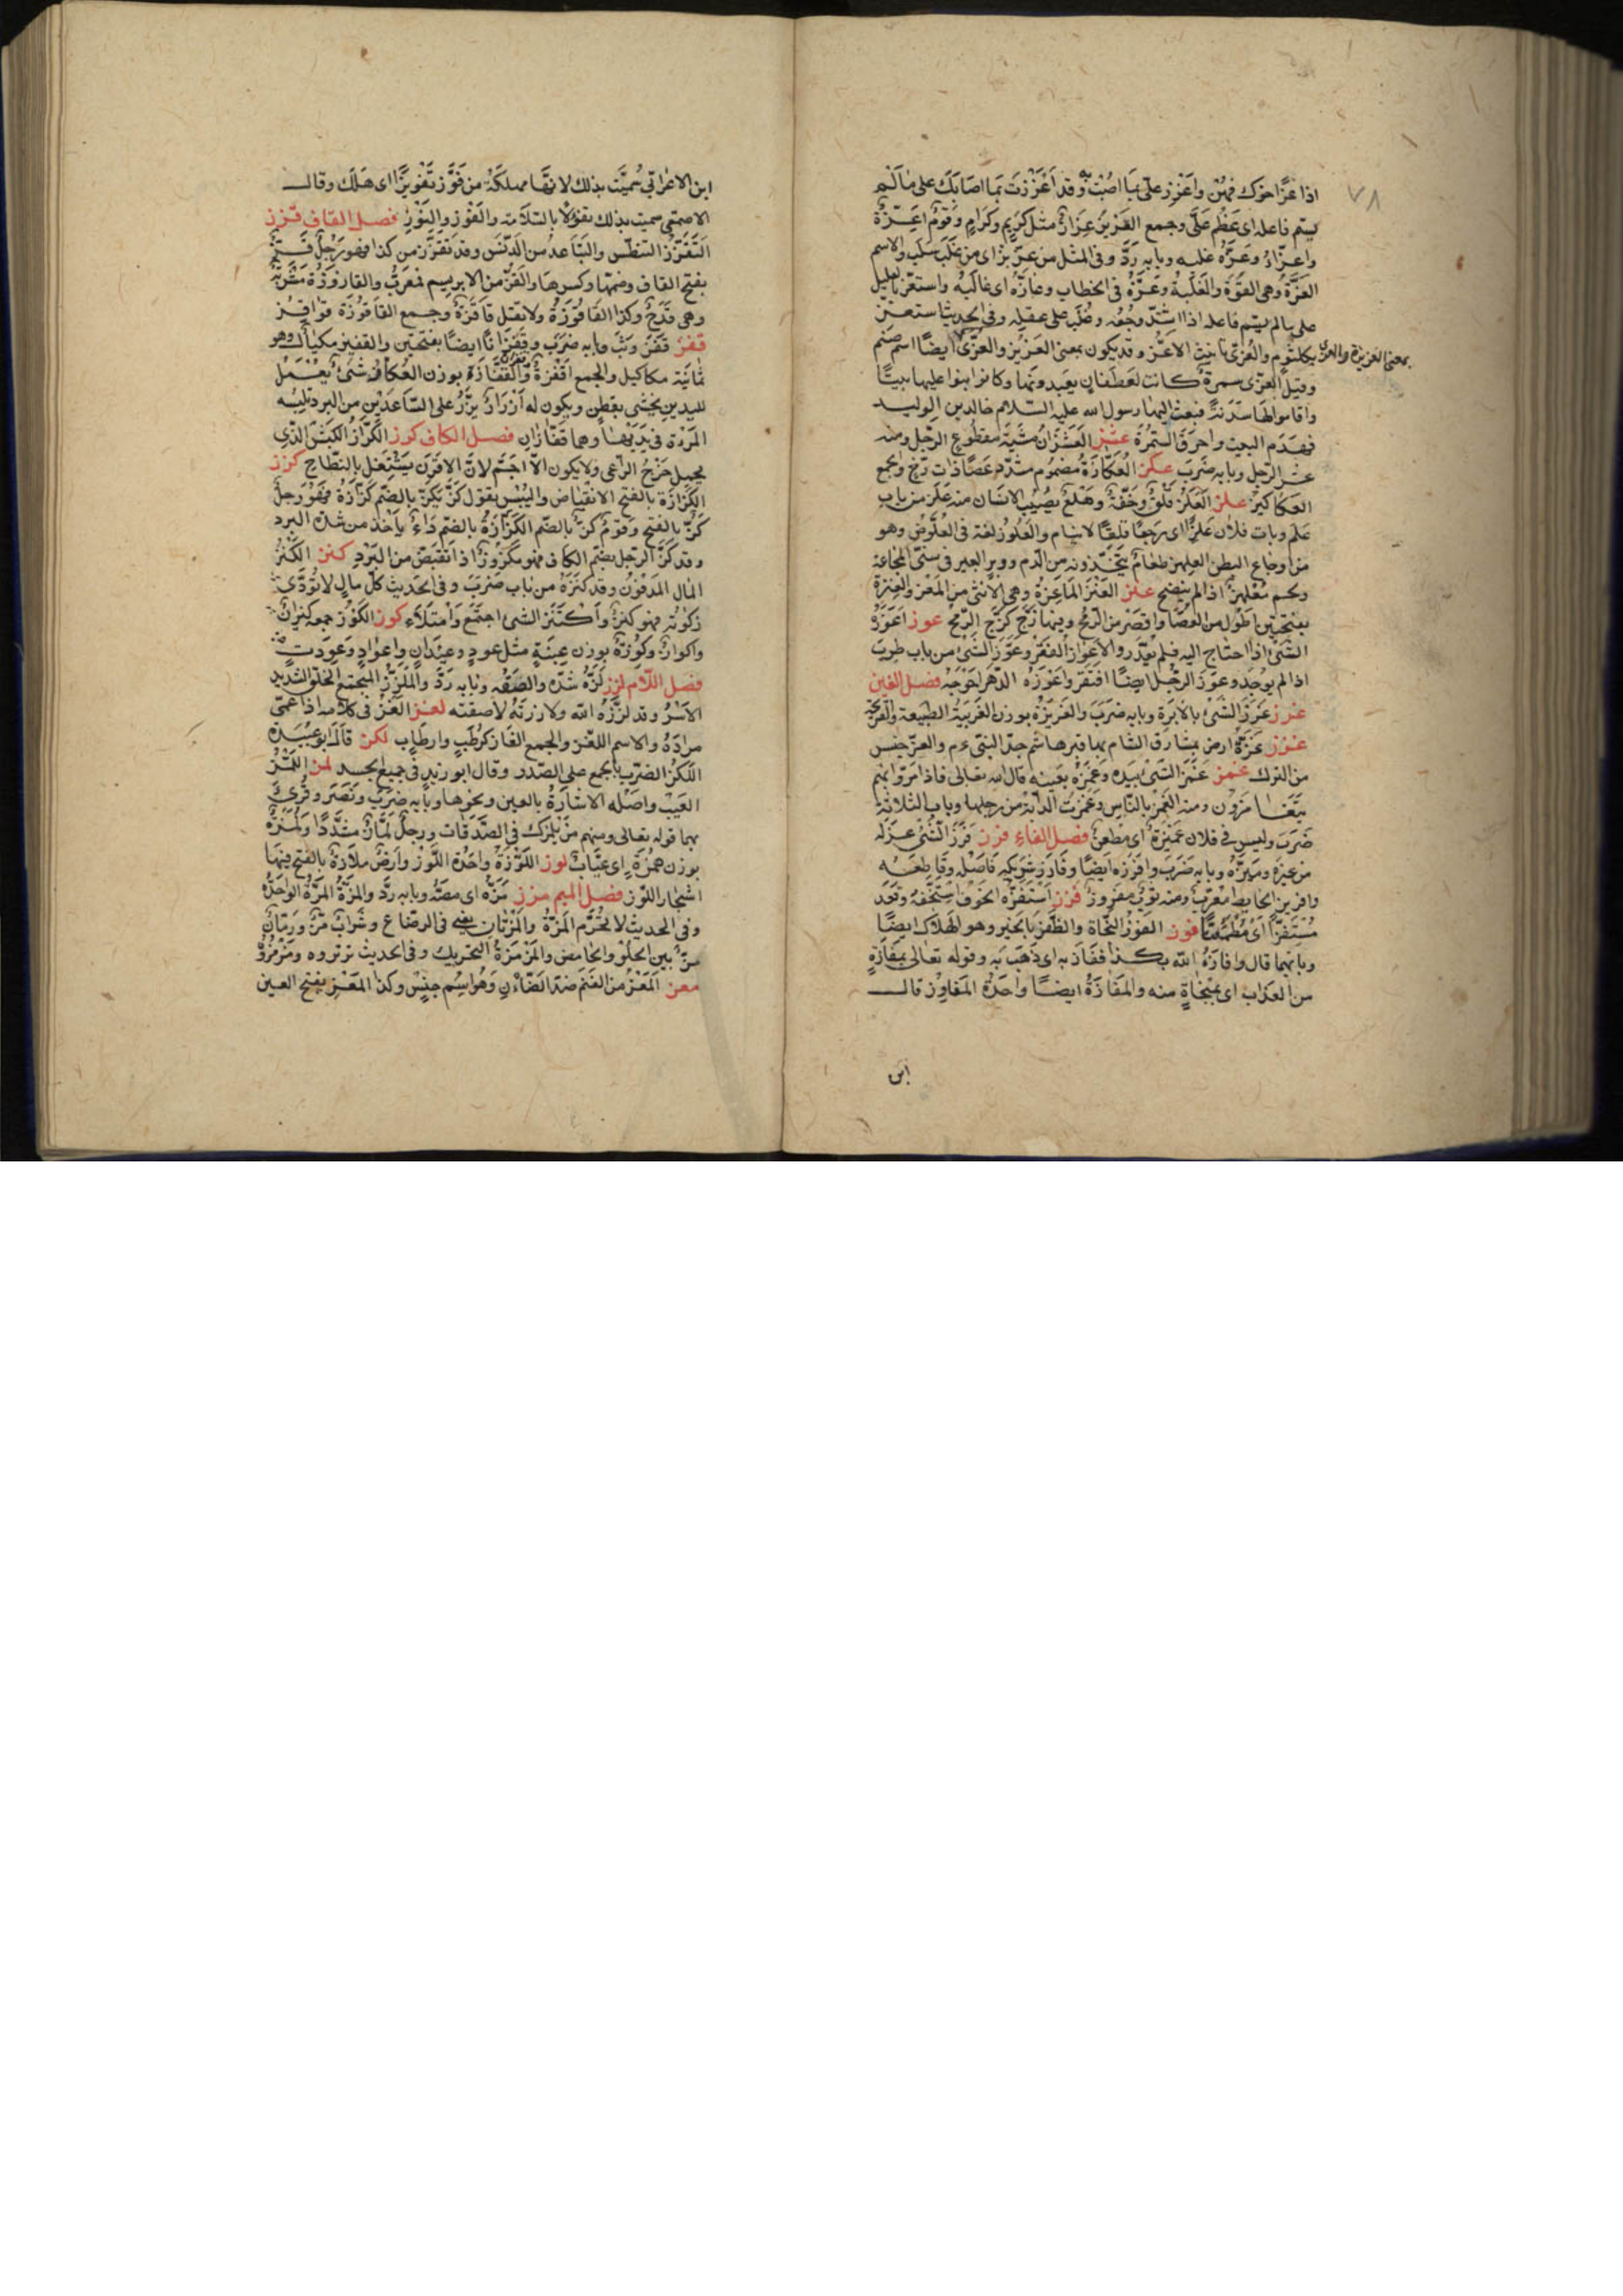 ٧٨
اذا عَزَّ اخوك فهُن واَعْزِز علىّ بما اُصِبْتَ به وقد اُعْزِزتَ بما اصابك على مالم
يسم فاعله اى عَظُم عَلَىَّ وجمع العَزِيز عِزَازٌ مثل كَرِيم وكِرَامٍ وقَومٌ اَعِزّةٌ
واعزّاءُ وعَزَّهُ غلبه وبابه رَدَّ وفى المثل من عزّ بزّ اى من غلَب سَلَب والاسم
العِزَّةُ وهى القوّة والغَلَبةُ وعَزَّهُ فى الخطاب وعازّه اى غالبَهُ واستعزّ بالعليل
على مالم يسم فاعله اذا اشتدّ وجعُه وغُلب على عقله وفى الحديث استعزّ
بكلثوم والعُزّى تانيث الاعَزّ وقد يكون بمعنى العَزِيز والعُزّى ايضًا اسم صنم
بمعنى العزيزة والعزى
وقيل العزّى سمرة كانت لغطفان يعبدونها وكانوا بنوا عليها بيتًا
واقاموا لها سدنة فبعث اليها رسول الله عليه السّلام خالد بن الوليد
فهَدَم البيت واحرَقَ السّمرة عشز العَشَزَانُ مشيَةُ مقطوع الرِّجل ومنه
عشز الرّجل وبابه ضَرَبَ عكز العُكّازَةُ مضموم مشدّد عَصًا ذات زُجّ والجمع
العكاكيز علز العَلَزُ قَلَقٌ وخِفّةٌ وهَلَعٌ يُصيب الانسَان منه عَلِزَ من باب
علم وبات فلان عَلِزًا اى وَجِعًا قلقًا لا ينام والعِلَّوزُ لغة فى العِلَّوص وهو
من اوجاع البطن العلهز طعَامٌ يتّخذونه من الدّم ووبر البعير فى سنى المجاعة
ولحم مُعَلهَزٌ اذا لم ينضج عنز العَنْزُ المَاعِزةُ وهى الانثى من المَعْز والعَنَزةُ
بفتحتين اطوَل من العَصَا واقصَر من الرّمح وفيها زُجّ كزُجّ الرّمح عوز اَعْوَزَهُ
الشئ اذا احتاج اليه فلم يقدر والاِعْوازُ الفَقْرُ وعَوِزَ الشّئ من باب طرِبَ
اذا لم يوجَد وعَوِزَ الرجُل ايضًا افتقر واعْوَزَه الدّهْر احْوَجَه فصل الغين
غرز غَرَزَ الشئ بالابْرَة وبابه ضَرَبَ والغَريزة بوزن الغَرِيبَة الطبيعة والقريحة
غزز غَزّةُ ارض بمشارق الشام بها قبر هاشم جدّ النبى ءم والغزّ جنس
من الترك غمز غَمَزَ الشئ بيَده وغمَزَهُ بعَينه قال الله تعالى فاذا مَرّوا بهم
يتَغَامَزوُن ومنه الغَمْزُ بالنّاس وغَمَزت الدابّة من رجلها وباب الثلاثة
ضَرَبَ وليس فى فلان غمِيزَة اى مَطعنٌ فصل الفاء فرز فَرَزَ الشّئ عزَلَه
من غيره ومَيَّزَه وبابه ضَرَبَ وافرَزَه ايضًا وفَارَزَ شريكه فَاصَلَه وقَاطعَه
وافريز الحَائط مُعَرّبٌ ومنه ثوبٌ مفروزٌ فزز استَفَزّهُ الخَوفُ استَخَفَّهُ وقَعَدَ
مُسْتَفِزًّا اى غير مُطمَئِنّ فوز الفَوْزُ النّجَاة والظّفَرُ بالخَير وهو الهَلاك ايضًا
وبابهما قال وافازَهُ الله بكذا فَفَازَ به اى ذَهَبَ به وقوله تعالى بمَفازَةٍ
من العذاب اى بمَنْجَاةٍ منه والمَفَازَةُ ايضًا واحدةُ المَفاوز قال
ابن
ابن الاعرابي سُمّيَت بذلك لانهَا مهلكَةٌ من فَوَّزَ تَفْويزًا اى هَلَك وقال
الاصمعى سميت بذلك تفؤّلاً بالسّلامة والفَوْز فصل القاف قزز
التَّقَزُّز التنطّس والتّبَاعد من الدّنَس وقد تقَزَّز من كذا فهو رَجُلٌ قَزٌّ
بفتح القاف وضمها وكسرها والقَزُّ من الابريسم مُعَرّبٌ والقازوزَةُ مَشْرَبَةٌ
وهى قَدَحٌ وكذا القَاقُوزَةُ ولا تقل قاقُزَّةٌ وجمع القَاقُوزَة قوَاقِيز
قفز قَفَزَ وثَبَ وبابه ضَرَبَ وقَفَزَانًا ايضًا بفتحتين والقفيز مكيال وهو
ثمانية مكاكيل والجمع اَقْفِزَةٌ وقُفْزَانٌ والقُفّازَة بوزن العُكّازِ شئ يُعْمَل
لليدين يحشى بقطن ويكون له اَزْرَارٌ يُزَرُّ على السّاعدَين من البرد تلبسه
المرْأة فى يَدَيْها وهما قفّازان فصل الكاف كرز الكَرّازُ الكَبْشُ الذى
يحمل خُرْجَ الرّاعى ولا يكون الاّ اجَمَّ لانّ الاَقْرَن يَشتَغل بالنّطاح كزز
الكَزَازَةُ بالفتح الانقبَاض واليُبْسُ تقول كَزَّ يَكزّ بالضّم كَزَازَةً فهو رَجلٌ
كَزٌّ بالفتح وقَومٌ كُزٌّ بالضم الكُزَازَةُ بالضم دَاءٌ يأخذ من شدّة البرد
وقد كُزَّ الرّجل بضم الكاف فهو مكْزُوزٌ اذا انقبَض من البَرْدِ كنز الكَنْزُ
المال المَدْفونُ وقد كنَزَهُ من باب ضَرَبَ وفى الحَديث كلّ مالٍ لا تُؤَدَّى
زكوته فهو كنزٌ واكْتَنَزَ الشئ اجتمَعَ وامتلَأَ كوز الكُوزُ جمعه كيزَانٌ
واكوازٌ وكِوَزَةٌ بوزن عِنَبَةٍ مثل عودٍ وعيْدَانٍ واعوادٍ وعِوَدَةٍ
فصل اللاّم لزز لَزَّهُ شدّه والصَقَه وبابه رَدَّ والمُلَزَّزُ المجتمع الخَلْقِ الشديد
الاَسْرِ وقد لَزَّزَهُ الله ولازَزتَهُ لاصقته لغز اَلْغَزَ فى كلامه اذا عَمَّى
مرادَهُ والاسم اللُّغَز والجمع الغَاز كرُطَبٍ وارطَاب لكز قالَ ابو عُبَيدَة
اللَّكْزُ الضَّرْب بالجُمع على الصّدر وقال ابو زيد فى جميع الجسد لمز اللَّمْزُ
العَيْبُ واَصْلُه الاشارَةُ بالعين ونحوها وبابه ضَرَبَ ونَصَرَ وقُرِئَ
بهما قوله تعالى ومنهم من يَلمِزك فى الصَّدَقات ورجلٌ لَمّازٌ مشدَّدًا ولُمَزَةٌ
بوزن هُمَزَة اى عيّابٌ لوز اللَّوْزَةُ واحدَة اللَّوْز واَرضٌ مَلازَةٌ بالفتح فيها
اشجار اللّوز فصل الميم مزز مَزَّهُ اى مصّه وبابه رَدَّ والمَزَّةُ المَرَّةُ الواحدَةُ
وفى الحديث لا تُحَرِّم المَزَّةُ والمَزَّتَان يعنى فى الرضَاع وشَرابٌ مُزٌّ ورُمّانٌ
مزٌّ بين الحُلْو والحامض والمَزْمَزَةُ التحريك وفى الحديث ترتروه ومَزْمِزُوهُ
معز المَعْزُ من الغَنَم ضدّ الضّأن وهُو اسم جنسٍ وكذا المَعَز بفتح العين